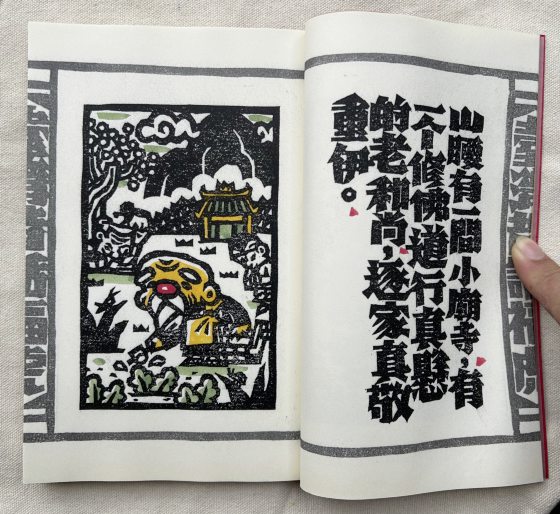 山腰有一間小廟寺，有
一个修佛道行真懸
的老和尚，逐家真敬
重伊。